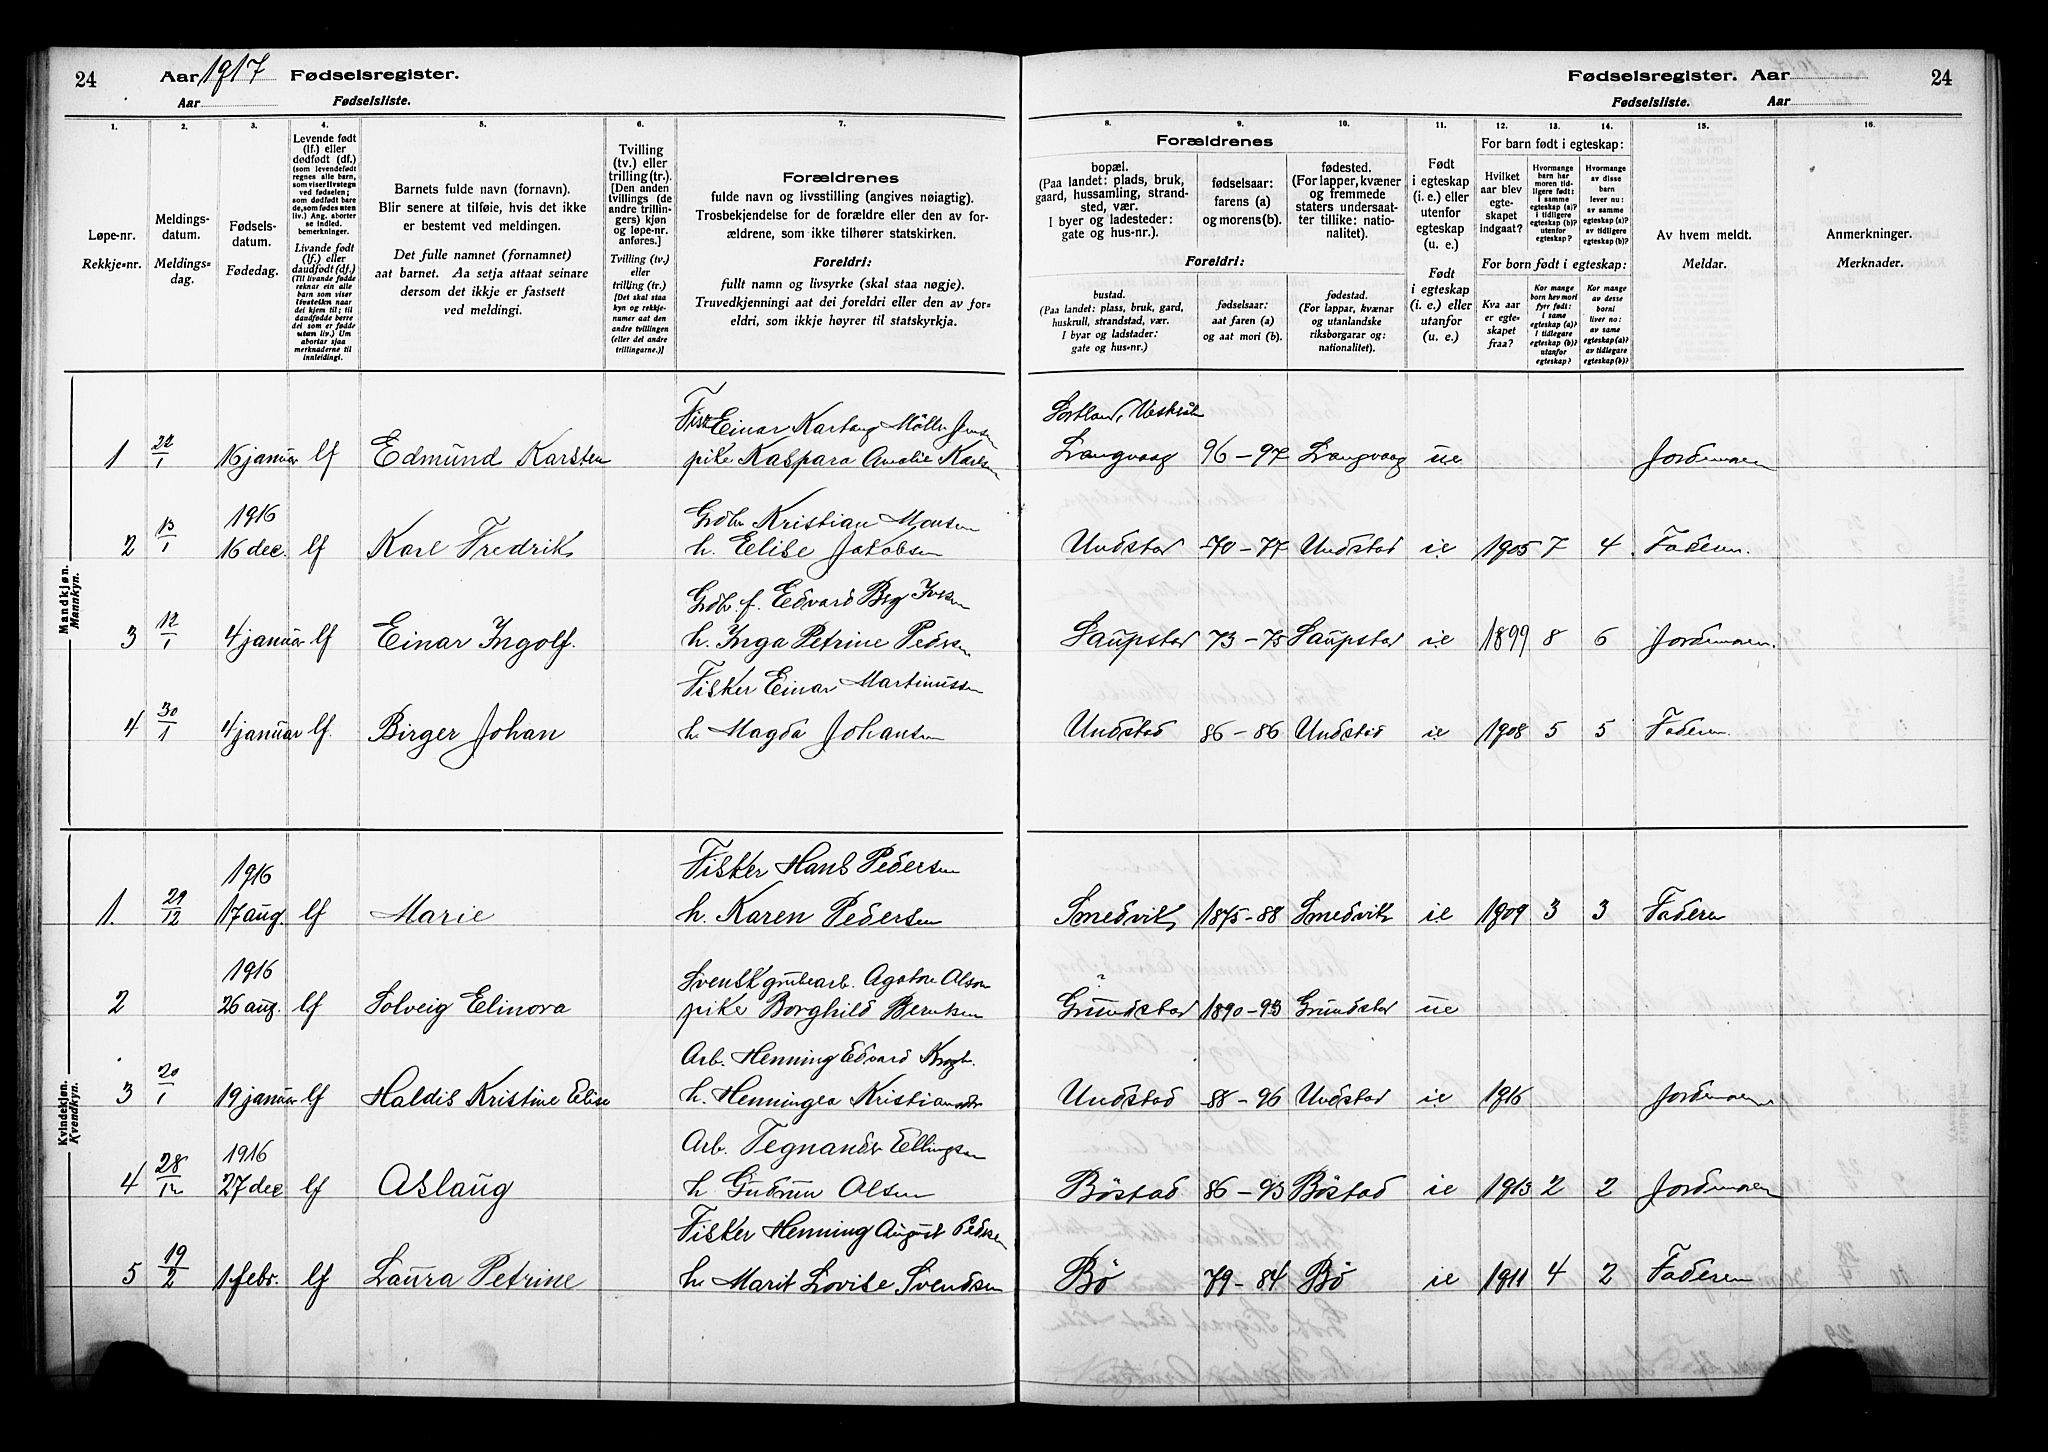 24 Aar 1917 Fødselsregister.
Aar Fødselsliste.
1. 2. 3. 4. 5. 6. 7.
Løpe-nr.
Rekkje-nr.
Meldings-
datum.
Meldings-
dag.
Fødsels-
datum.
Fødedag.
Levende født
(lf.) eller
dødfødt (df.)
(som levendefødt
regnes alle barn,
som viser livstegn
ved fødselen;
som dødfødt ba-
re de, som fødes uten
liv.) Ang. aborter
se indled.
bemerkninger.
Livande født
(lf.) eller
daudfødt (df.)
(Til livande fødde
reknar ein alle
born som viser
livsteikn naar
dei kjem til; til
daudfødde berre
dei som er fødde
utan liv.) Um
abortar sjaa
merknaderne til
innleidingi.
Barnets fulde navn (fornavn).
Blir senere at tilføie, hvis det ikke
er bestemt ved meldingen.
Det fulle namnet (fornamnet)
aat barnet. Aa setja attaat seinare
dersom det ikkje er fastsett
ved meldingi.
Tvilling
(tv.) eller
trilling (tr.).
[Den anden
tvillings (de
andre trillin-
gers) kjøn
og løpe-nr.
anføres.]
Tvilling (tv.)
eller
trilling (tr.)
[Det skal staa
kyn og rekkje-
numer aat den
andre tvillingen
(eller dei andre
trillingarne.)]
Forældrenes
fulde navn og livsstilling (angives nøiagtig).
Trosbekjendelse for de forældre eller den av for-
ældrene, som ikke tilhører statskirken.
Foreldri:
fullt namn og livsyrke (skal staa nøgje).
Truvedkjenningi aat dei foreldri eller den av for-
eldri, som ikkje høyrer til statskyrkja.
Mandkjøn.
Mannkyn.
1 22/1 16 januar lf Edmund Karsten Fisk. Einar Kartang Möller Jensen
pike Kaspara Amalie Karlsen
2 13/1 1916 16 dec. lf Karl Fredrik Grdb. Kristian Monsen
h. Elise Jakobsen
3 12/1 4 januar lf Einar Ingolf. Grdb. f. Edvard Berg Iversen
h. Inga Petrine Pedersen
4 30/1 4 januar lf. Birger Johan Fisker Einar Martinussen
h. Magda Johansen
Kvindekjøn.
Kvendkyn.
1. 29/12 1916 17 aug. lf Marie Fisker Hans Pedersen
h. Karen Pedersen
2 1916 26 aug. lf Solveig Elinora Svensk grubearb. Agaton Olson
pike Borghild Berntsen
3 20/1 19 januar lf Haldis Kristine Elise Arb. Henning Edvard Krogh.
h. Henningea Kristiansen
4 28/12 1916 27 dec lf Aslaug Arb. Tegnander Ellingsen
h Gudrun Olsen
5 19/2 1 febr. lf Laura Petrine Fisker Henning August Pedersen
h. Marit Lovise Svendsen
Fødselsregister. Aar 24
Fødselsliste. Aar
8. 9. 10. 11. 12. 13. 14. 15. 16.
Forældrenes
bopæl.
(Paa landet: plads, bruk,
gaard, hussamling, strand-
sted, vær.
I byer og ladesteder:
gate og hus-nr.).
fødselsaar:
farens (a)
og morens (b).
fødested.
(For lapper, kvæner
og fremmede
staters undersaat-
ter tillike: natio-
nalitet).
Foreldri:
bustad.
(Paa landet: plass, bruk, gard,
huskrull, strandstad, vær.
I byar og ladstader:
gate og hus-nr.)
fødselsaar:
aat faren (a)
og aat mori (b).
fødestad.
(For lappar, kvænar
og utanlandske
riksborgarar og:
nationalitet).
Født
i egteskap
(i. e.) eller
utenfor
egteskap
(u. e.)
Født
i egteskap
(i. e.) eller
utanfor
(u. e.)
For barn født i egteskap:
Hvilket
aar blev
egte-
skapet
indgaat?
Hvormange
barn har
moren tid-
ligere født:
i samme
egteskap (a)?
i tidligere
egteskap (b)?
utenfor
egteskap?
Hvormange
av disse
barn
lever nu:
av samme
egteskap (a)?
av tidligere
egteskap (b)?
For born født i egteskap:
Kva aar
er egte-
skapet
fraa?
Kor mange
born hev mori
fyrr født:
i same
egteskap (a)?
i tidlegare
egteskap (b)?
utanfor
egteskap?
Kor mange
av desse
borni
liver no:
av same
egteskap (a)?
av tidlegare
egteskap (b)?
Av hvem meldt.
Meldar.
Anmerkninger.
Merknader.
Sortland, Vesteraalen
Langvaag 96 – 97 Langvaag ue Jordmoren
Undstad 70 – 77 Undstad ie 1905 7 4 Faderen.
Saupstad 73 – 75 Saupstad ie 1899 8 6 Jordmoren.
Undstad 86 – 86 Undstad ie 1908 5 5 Faderen.
Smedvik 1875 – 88 Smedvik ie 1909 3 3 Faderen
Grundstad 1890 – 93 Grundstad ue
Undstad 88 – 96 Undstad ie 1916 Jordmoren
Böstad 86 – 93 Böstad ie 1913 2 2 Jordmoren
Bö 79 – 84 Bö ie 1911 4 2 Faderen